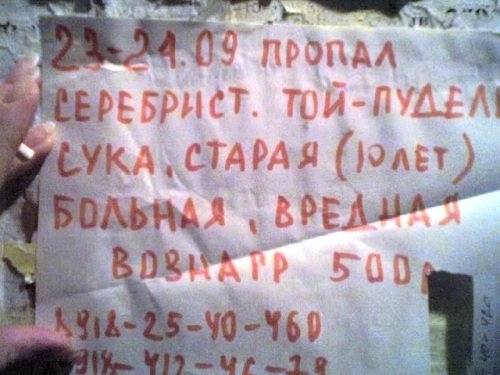 23-24.09 ПРОПАЛ
СЕРЕБРИСТ. ТОЙ-ПУДЕЛЬ
СУКА, СТАРАЯ (10 ЛЕТ)
БОЛЬНАЯ, ВРЕДНАЯ
ВОЗНАГР 5000
8918-25-40-460